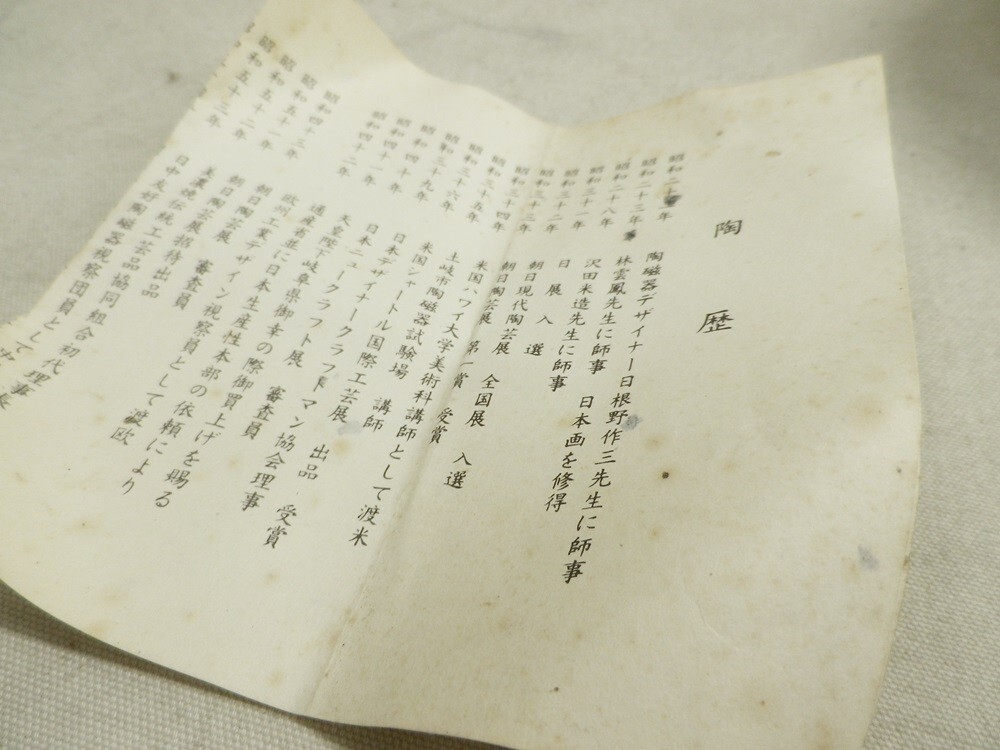 陶歴
陶磁器デザイナー日根野作三先生に師事
昭和二十三年 林雲鳳先生に師事 日本画を修得
昭和二十八年 沢田米造先生に師事
昭和三十一年 日展入選
昭和三十二年 朝日現代陶芸展 全国展 入選
昭和三十三年 朝日陶芸展 第一賞 受賞
昭和三十四年 米国ハワイ大学美術科講師として渡米
昭和三十五年 土岐市陶磁器試験場 講師
昭和三十六年 米国シャートル国際工芸展 出品
昭和三十九年 日本デザイナークラフトマン協会理事
昭和四十年 日本ニュークラフト展 審査員 受賞
昭和四十一年 天皇陛下岐阜県御幸の際御買上げを賜る
昭和四十二年 通産省並に日本生産性本部の依頼により
欧州工業デザイン視察員として渡欧
昭和四十三年 朝日陶芸展 審査員
昭和五十一年 朝日陶芸展招待出品
昭和五十二年 美濃焼伝統工芸品協同組合初代理事長
昭和五十三年 日中友好陶磁器視察団員として